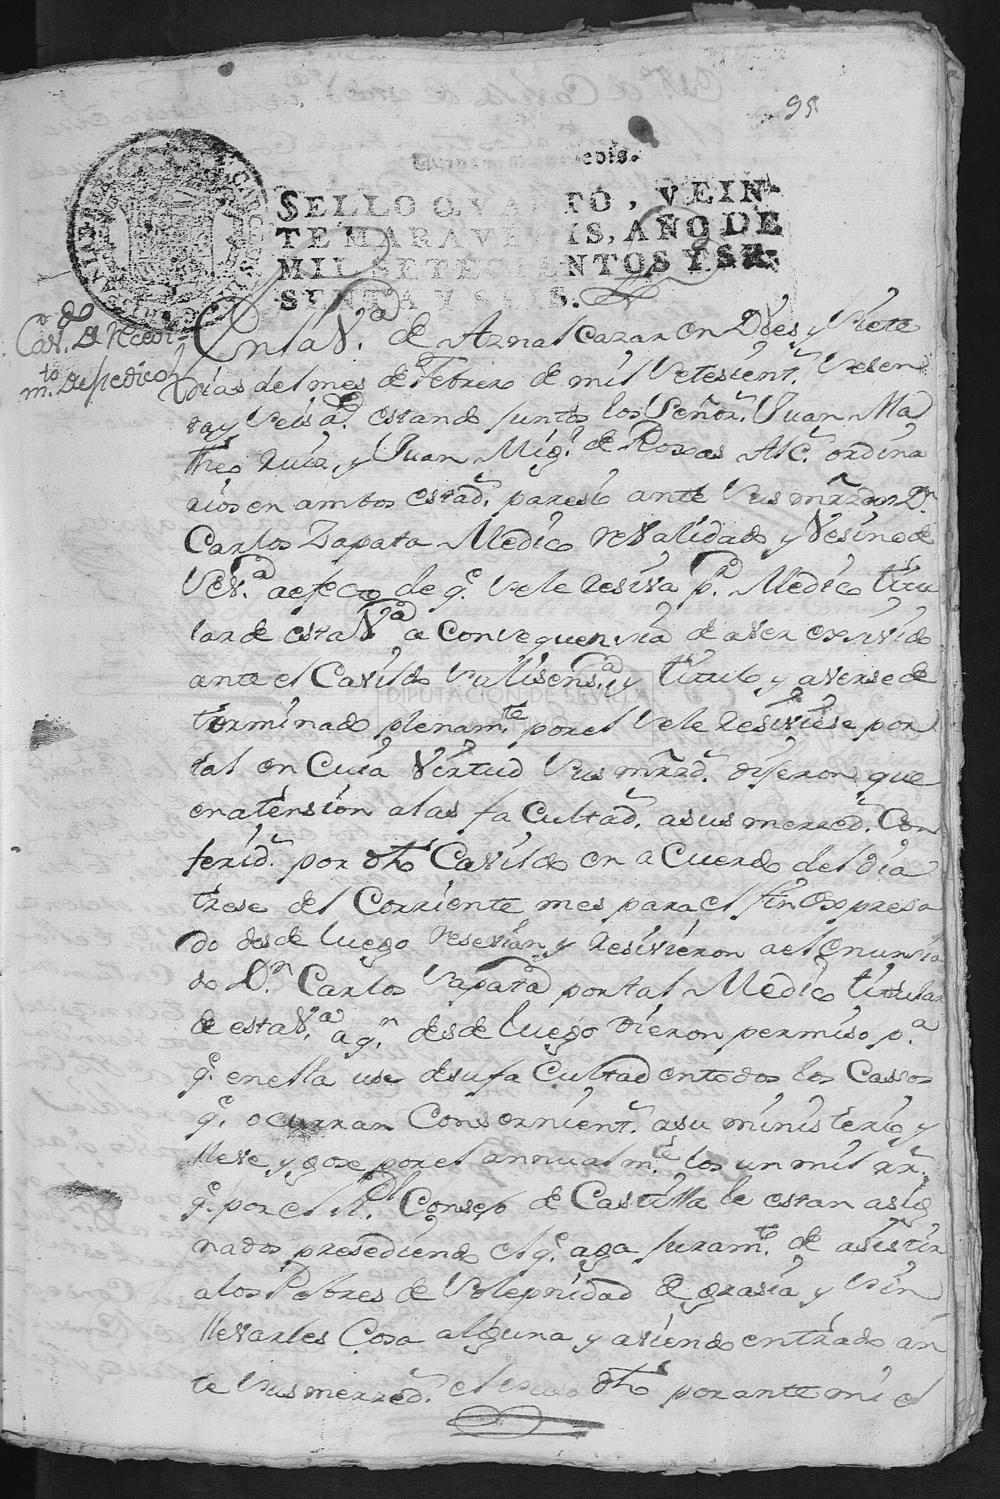 95
SELLO QVARTO, VEIN-
TE MARAVEDIS, AÑO DE
MIL SETECIENTOS Y SE-
SENTA Y SEIS.
Cav.do de Recevi-
m.to de Medico
En la V.a de Aznalcazar en Dies y Siete
dias del mes de Febrero de mil Setesient.s Sesen
ta y Seis a.s estando juntos los Señor.s Juan Ma
theo Ruiz, y Juan Mig.l de Roxas Alc.s ordina
rios en ambos estad.s paresio ante Sus mrzd.s Dn
Carlos Zapata Medico revalidado y Vesino de
Sev.a a efecto de q.e Se le resiva p.r Medico titu
lar de esta V.a a Consequensia de aver exsivido
ante el Cavildo Su lisens.a y titulo y averse de
terminado plenam.te por el Se le resiviese por
tal en Cuia Virtud Sus mrzd.s dijeron que
en atension a las facultad.s a sus merzed.s Con
ferid.s por dho Cavildo en aCuerdo del dia
trese del Corriente mes para el fin Expresa
do desde luego resevian y resivieron a el enunsia
do D.n Carlos Sapata por tal Medico titular
de esta V.a a q.n desde luego dieron permiso p.a
q.e en ella use de su faCultad en todos los Cassos
q.e ocurran Consernient.s a su ministerio y
lleve y gose por el annualm.te los un mil rr.s
q.e por el R.l Consejo de Castilla le estan asig
nados presediendo el q.e aga juram.to de asistir
a los Pobres de Solepnidad de grasia y Sin
llevarles Cosa alguna y aviendo entrado an
te Sus merzed.s el dho por ante mi el